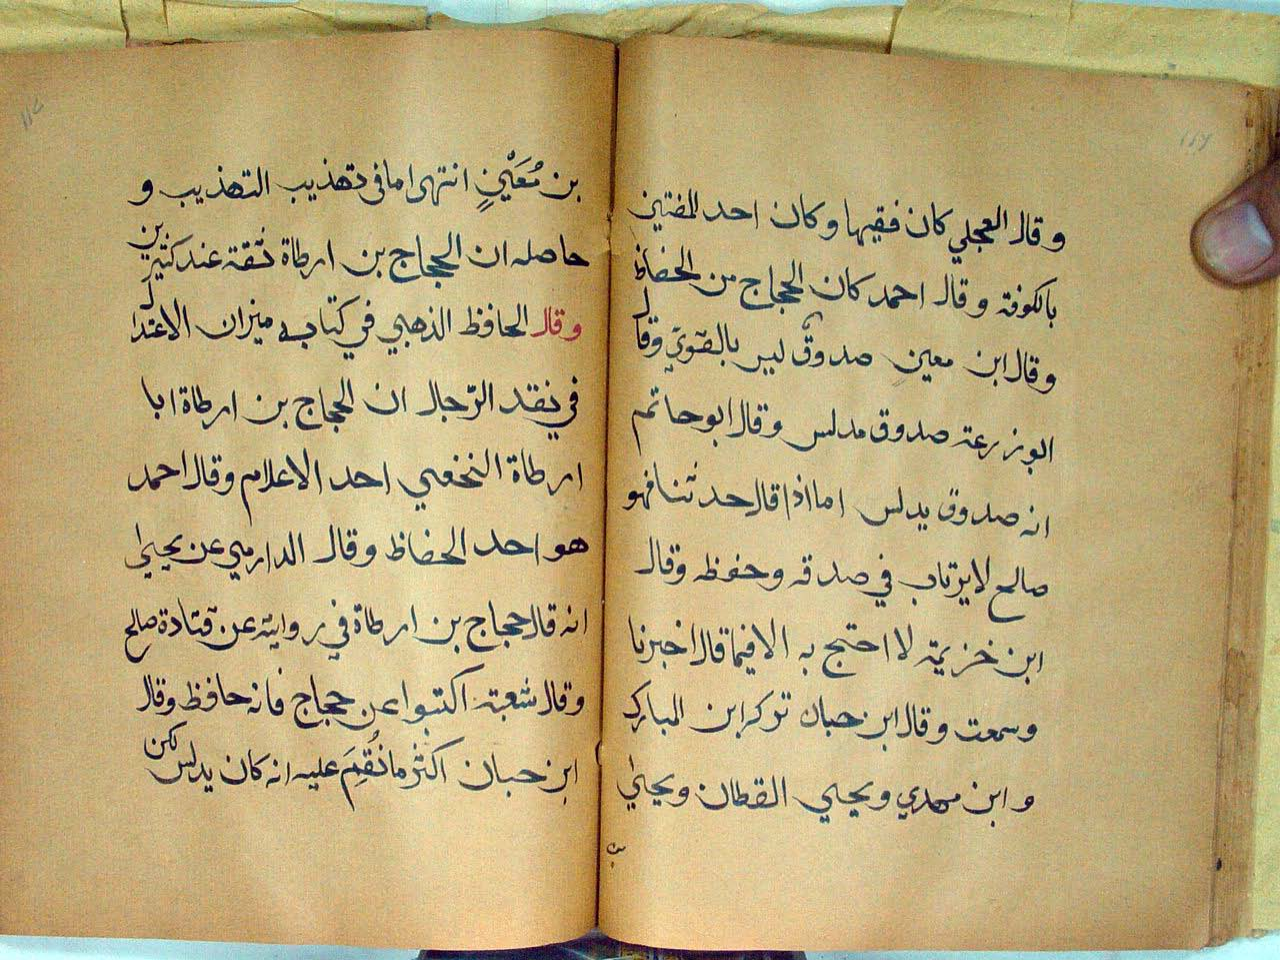 وقال العجلي كان فقيها وكان احد المفتين
بالكوفة وقال احمد كان الحجاج من الحفاظ
وقال ابن معين صدوق ليس بالقوي وقال
ابو زرعة صدوق مدلس وقال ابو حاتم
انه صدوق يدلس اما اذا قال حدثنا فهو
صالح لا يرتاب في صدقه وحفظه وقال
ابن خزيمة لا احتج به الا فيما قال اخبرنا
وسمعت وقال ابن حبان تركه ابن المبارك
وابن مهدي ويحيي القطان ويحيىٰ
بن
بن مُعَيْنٍ انتهى اما في تهذيب التهذيب و
حاصله ان الحجاج بن ارطاة ثقة عند كثيرين
وقال الحافظ الذهبي في كتابه ميزان الاعتدال
في نقد الرّجال ان الحجاج بن ارطاة ابا
ارطاة النخعي احد الاعلام وقال احمد
هو احد الحفاظ وقال الدارمي عن يحيىٰ
انه قال حجاج بن ارطاة في روايته عن قتادة صالح
وقال شعبة اكتبوا عن حجاج فانه حافظ وقال
ابن حبان اكثر ما نُقِمَ عليه انه كان يدلس لكن